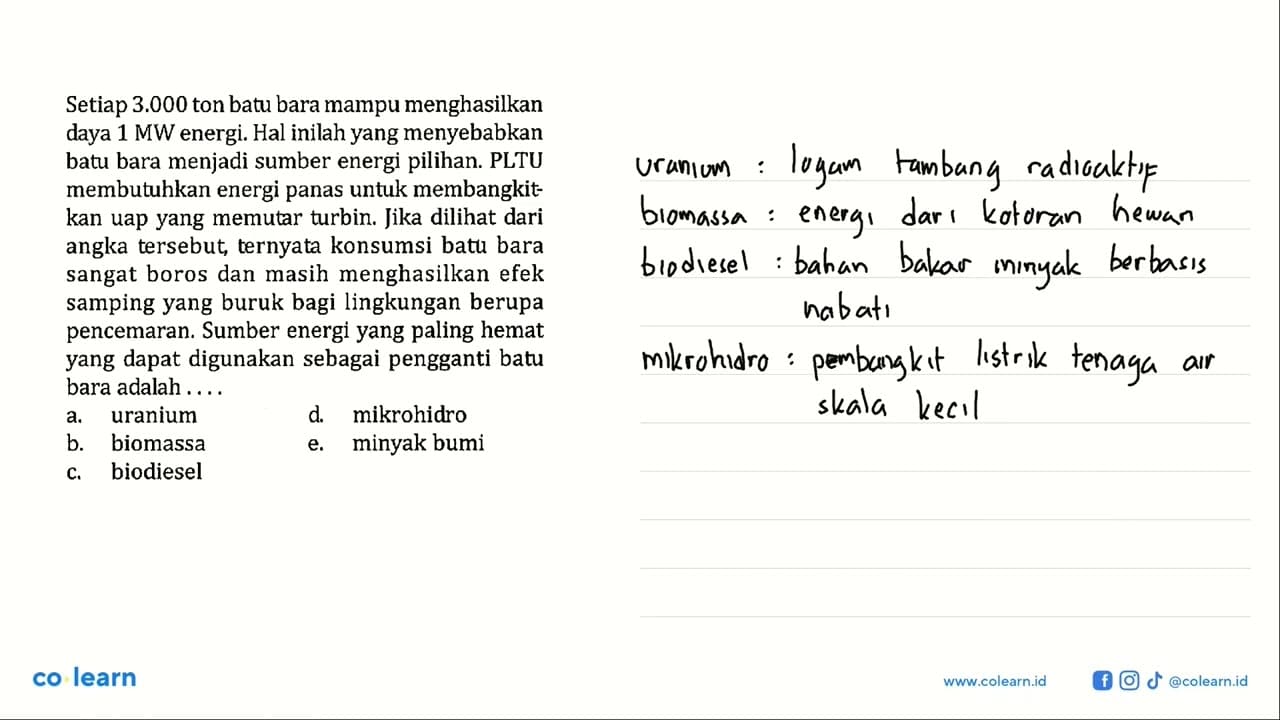 Setiap 3.000 ton batu bara mampu menghasilkan
daya 1 MW energi. Hal inilah yang menyebabkan
batu bara menjadi sumber energi pilihan. PLTU
membutuhkan energi panas untuk membangkit-
kan uap yang memutar turbin. Jika dilihat dari
angka tersebut, ternyata konsumsi batu bara
sangat boros dan masih menghasilkan efek
samping yang buruk bagi lingkungan berupa
pencemaran. Sumber energi yang paling hemat
yang dapat digunakan sebagai pengganti batu
bara adalah . . . .
a. uranium d. mikrohidro
b. biomassa e. minyak bumi
c. biodiesel
uranium : logam tambang radioaktif
biomassa : energi dari kotoran hewan
biodiesel : bahan bakar minyak berbasis
nabati
mikrohidro : pembangkit listrik tenaga air
skala kecil
co learn
www.colearn.id
@colearn.id